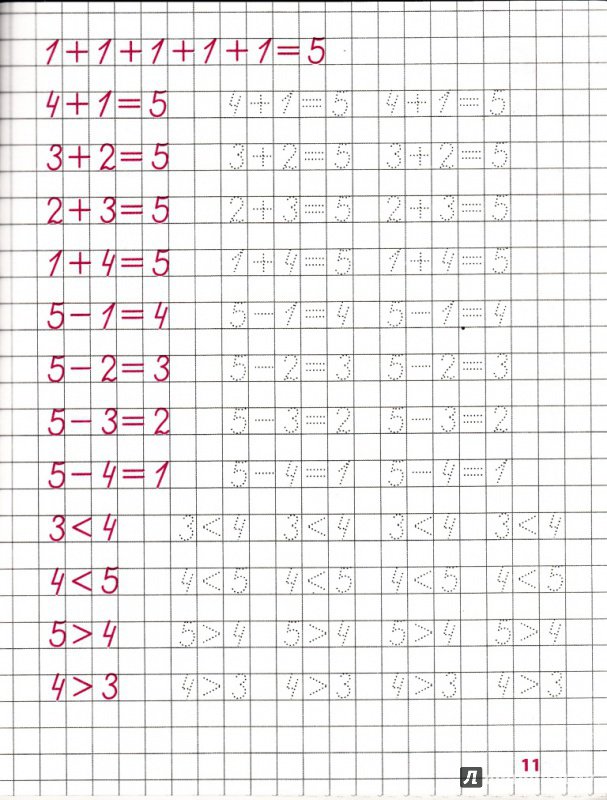 1+1+1+1+1=5
4+1=5 4+1=5 4+1=5
3+2=5 3+2=5 3+2=5
2+3=5 2+3=5 2+3=5
1+4=5 1+4=5 1+4=5
5-1=4 5-1=4 5-1=4
5-2=3 5-2=3 5-2=3
5-3=2 5-3=2 5-3=2
5-4=1 5-4=1 5-4=1
3<4 3<4 3<4 3<4 3<4
4<5 4<5 4<5 4<5 4<5
5>4 5>4 5>4 5>4 5>4
4>3 4>3 4>3 4>3 4>3
11
Л